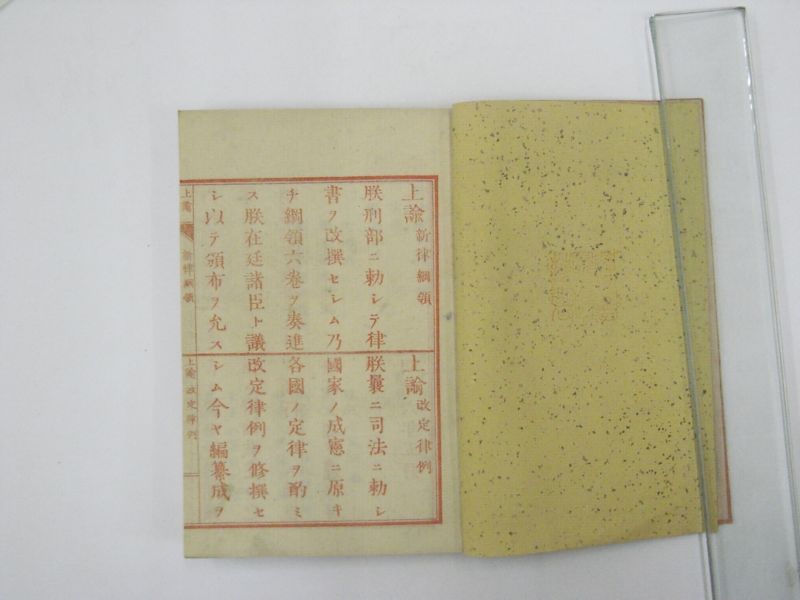 上諭 新律綱領
朕刑部ニ勅シテ律
書ヲ改撰セシム乃
チ綱領六卷ヲ奏進
ス朕在廷諸臣ト議
シ以テ頒布ヲ允ス
上諭 改定律例
朕曩ニ司法ニ勅シ
國家ノ成憲ニ原キ
各國ノ定律ヲ酌ミ
改定律例ヲ修撰セ
シム今ヤ編纂成ヲ
上諭
新律綱領
上諭 改定律例